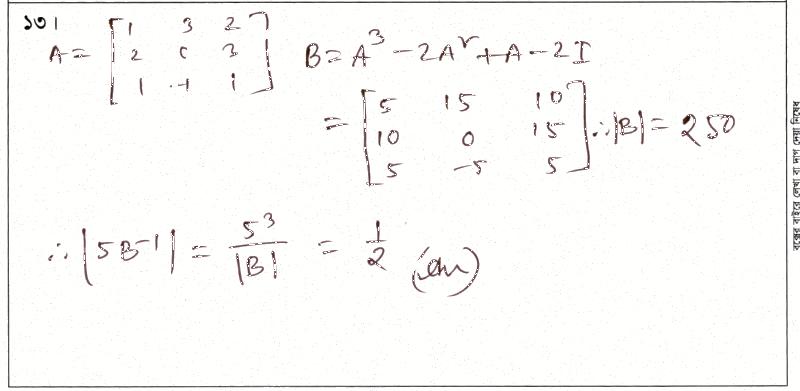 ১৩।
A = [1 3 2; 2 0 3; 1 -1 1] B = A³ - 2A² + A - 2I
= [5 15 10; 10 0 15; 5 -5 5] ∴ |B| = 250
∴ |5B⁻¹| = 5³/|B| = 1/2 (Am)
বক্সের বাইরে লেখা বা দাগ দেয়া নিষেধ